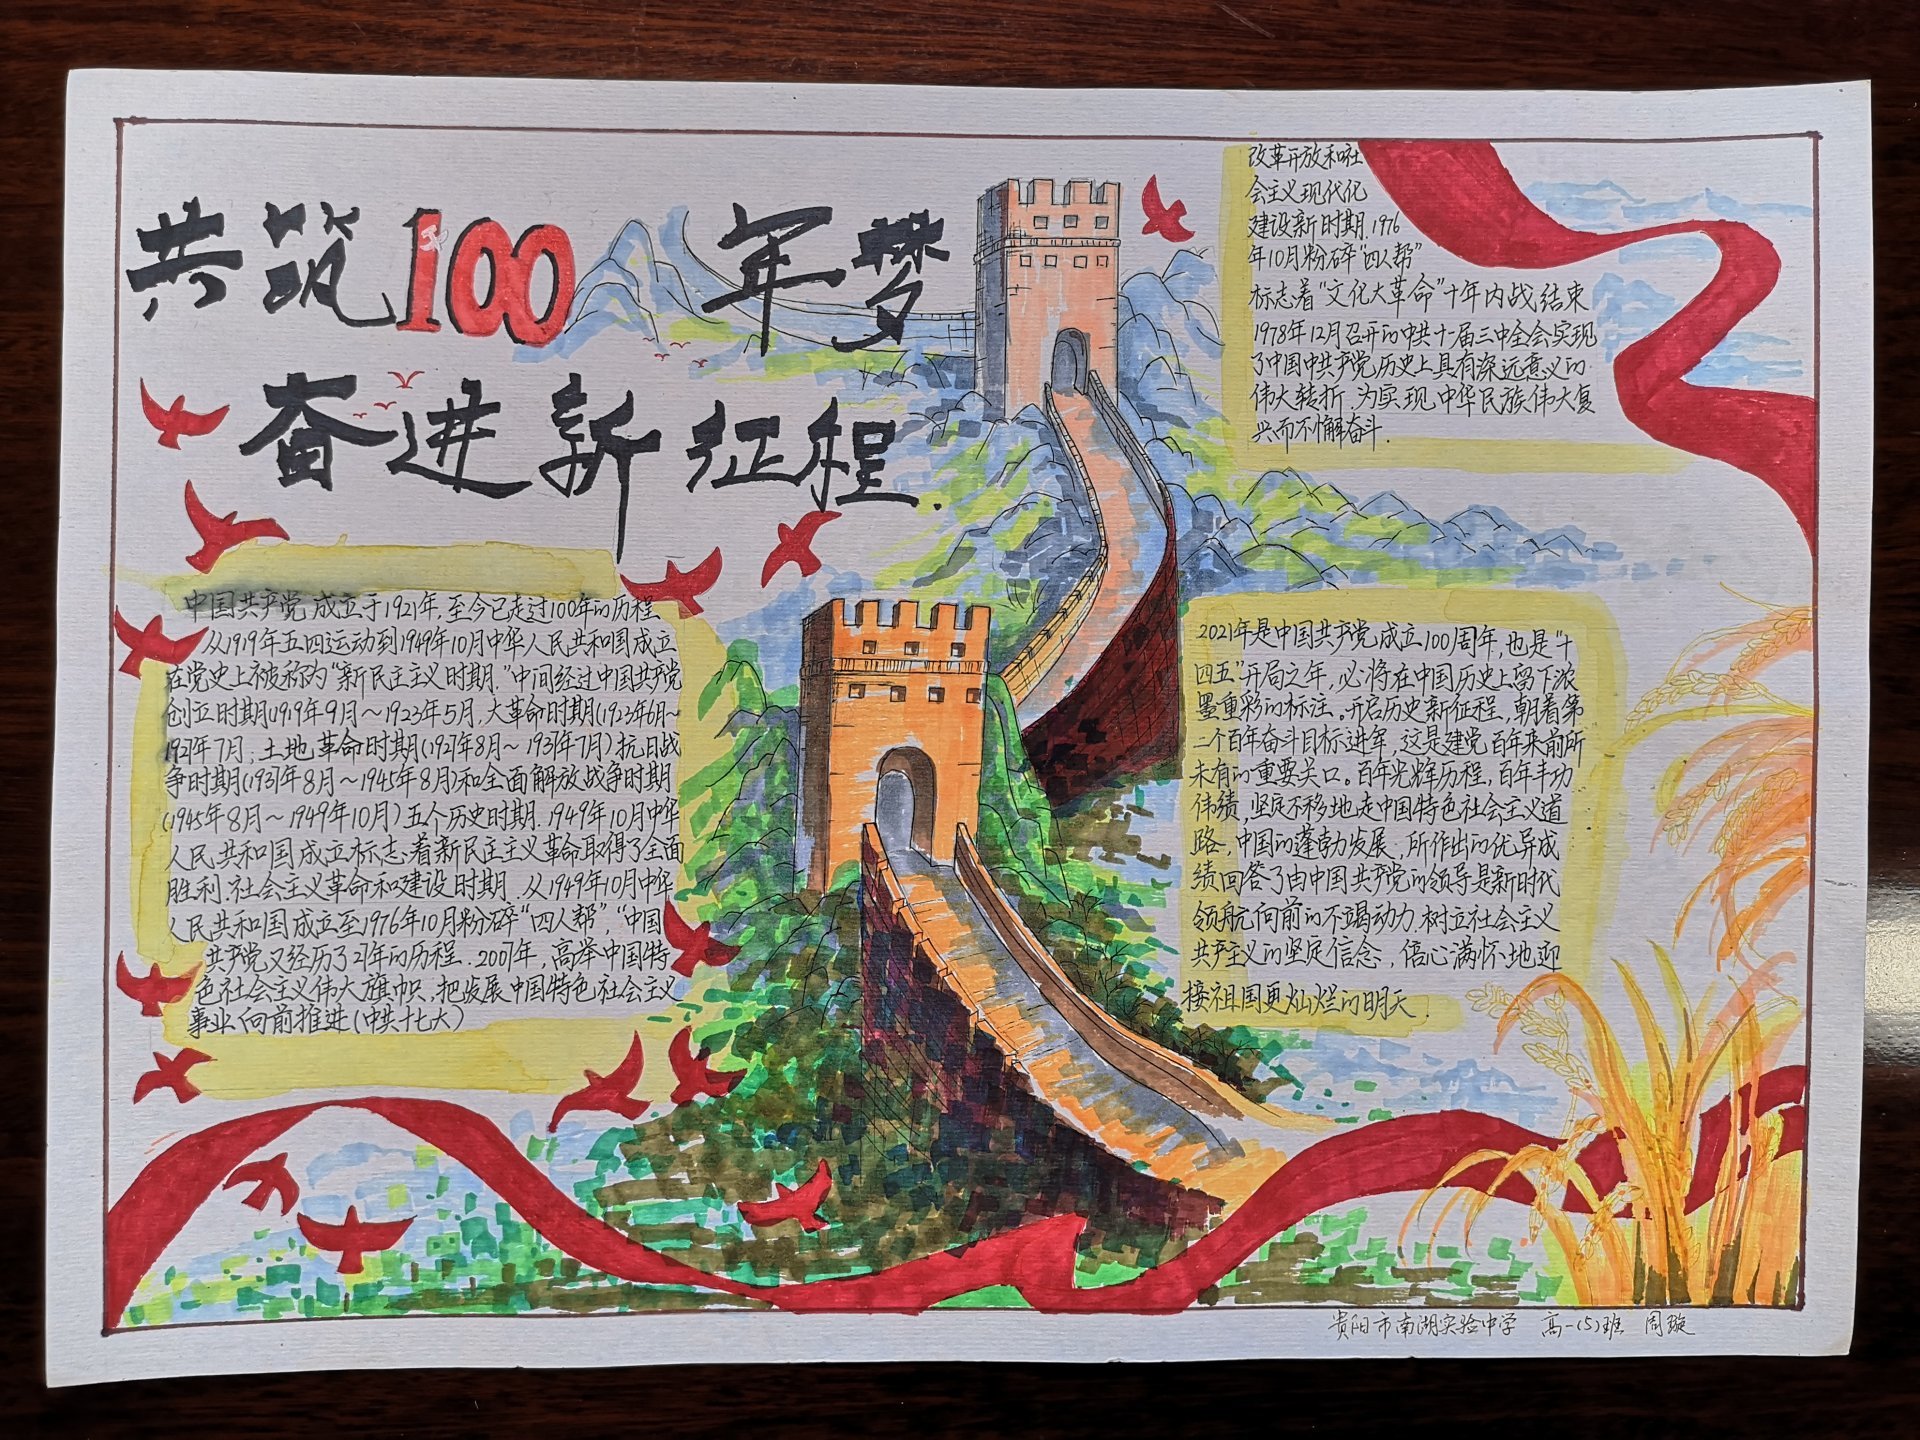 共筑100年梦
奋进新征程.
中国共产党成立于1921年,至今已走过100年的历程
从1919年五四运动到1949年10月中华人民共和国成立
在党史上被称为“新民主主义时期.”中间经过中国共产党
创立时期(1919年9月～1923年5月,大革命时期(1923年6月~
1927年7月;土地革命时期(1927年8月～1931年7月)抗日战
争时期(1931年8月～1945年8月)和全面解放战争时期
(1945年8月～1949年10月)五个历史时期.1949年10月中华
人民共和国成立标志着新民主主义革命取得了全面
胜利.社会主义革命和建设时期.从1949年10月中华
人民共和国成立至1976年10月粉碎“四人帮”,“中国
共产党又经历了27年的历程.2007年,高举中国特
色社会主义伟大旗帜,把发展中国特色社会主义
事业向前推进(中共十七大)
改革开放和社
会主义现代化
建设新时期.1976
年10月粉碎“四人帮”
标志着“文化大革命”十年内战结束
1978年12月召开的中共十一届三中全会实现
了中国中共产党历史上具有深远意义的
伟大转折,为实现中华民族伟大复
兴而不懈奋斗.
2021年是中国共产党成立100周年,也是“十
四五”开局之年,必将在中国历史上留下浓
墨重彩的标注。开启历史新征程,朝着第
二个百年奋斗目标进军,这是建党百年来前所
未有的重要关口。百年光辉历程,百年丰功
伟绩,坚定不移地走中国特色社会主义道
路,中国的蓬勃发展,所作出的优异成
绩回答了由中国共产党的领导是新时代
领航向前的不竭动力.树立社会主义
共产主义的坚定信念,信心满怀地迎
接祖国更灿烂的明天.
贵阳市南湖实验中学 高一(5)班 周璇